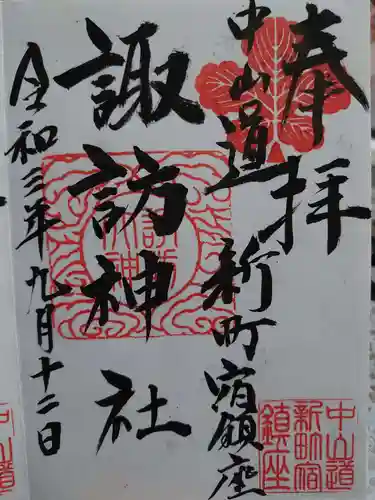 奉拝
中山道
新町宿鎮座
諏訪神社
令和三年九月十二日
中山道
新町宿
鎮座
中山道